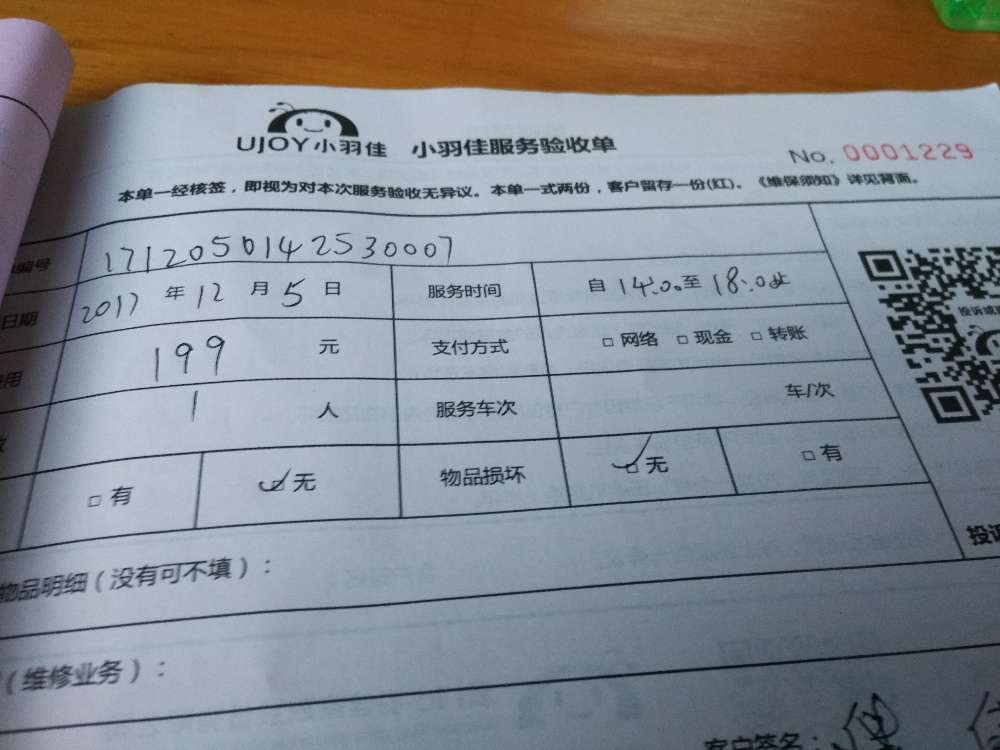 UJOY小羽佳 小羽佳服务验收单
No. 0001229
本单一经核签，即视为对本次服务验收无异议。本单一式两份，客户留存一份(红)。《维保须知》详见背面。
编号 1712050142530007
日期 2017 年 12 月 5 日 服务时间 自 14:00 至 18:00 止
用 199 元 支付方式 □ 网络 □ 现金 □ 转账
1 人 服务车次 车/次
□ 有 ☑ 无 物品损坏 ☑ 无 □ 有
物品明细（没有可不填）：
（维修业务）：
客户签名：
投诉